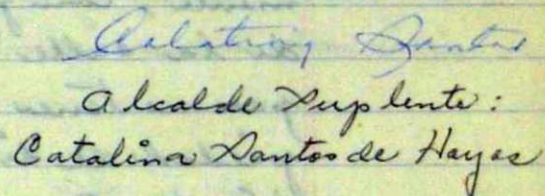 Catalina Santos
Alcalde Suplente:
Catalina Santos de Hayas